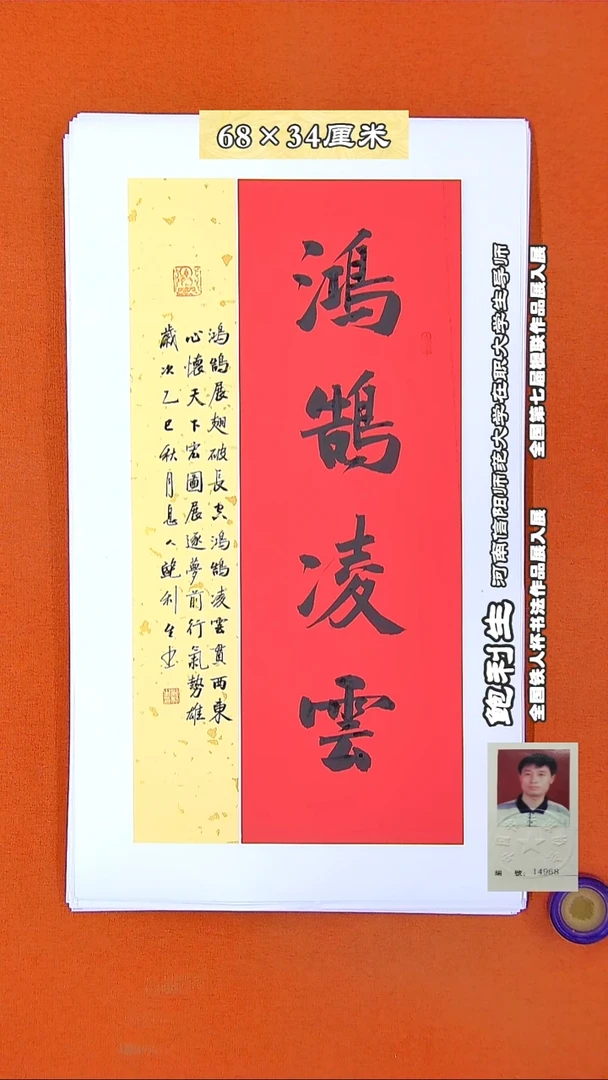 68×34厘米
鴻鵠凌雲
鴻鵠展翅破長空鴻鵠凌雲貫西東
心懷天下宏圖展逐夢前行氣勢雄
歲次乙巳秋月息人鲍利生书
鲍利生 河南信阳师范大学在职大学生导师
全国铁人杯书法作品展入展 全国第七届楹联作品展入展
編 號: 14968